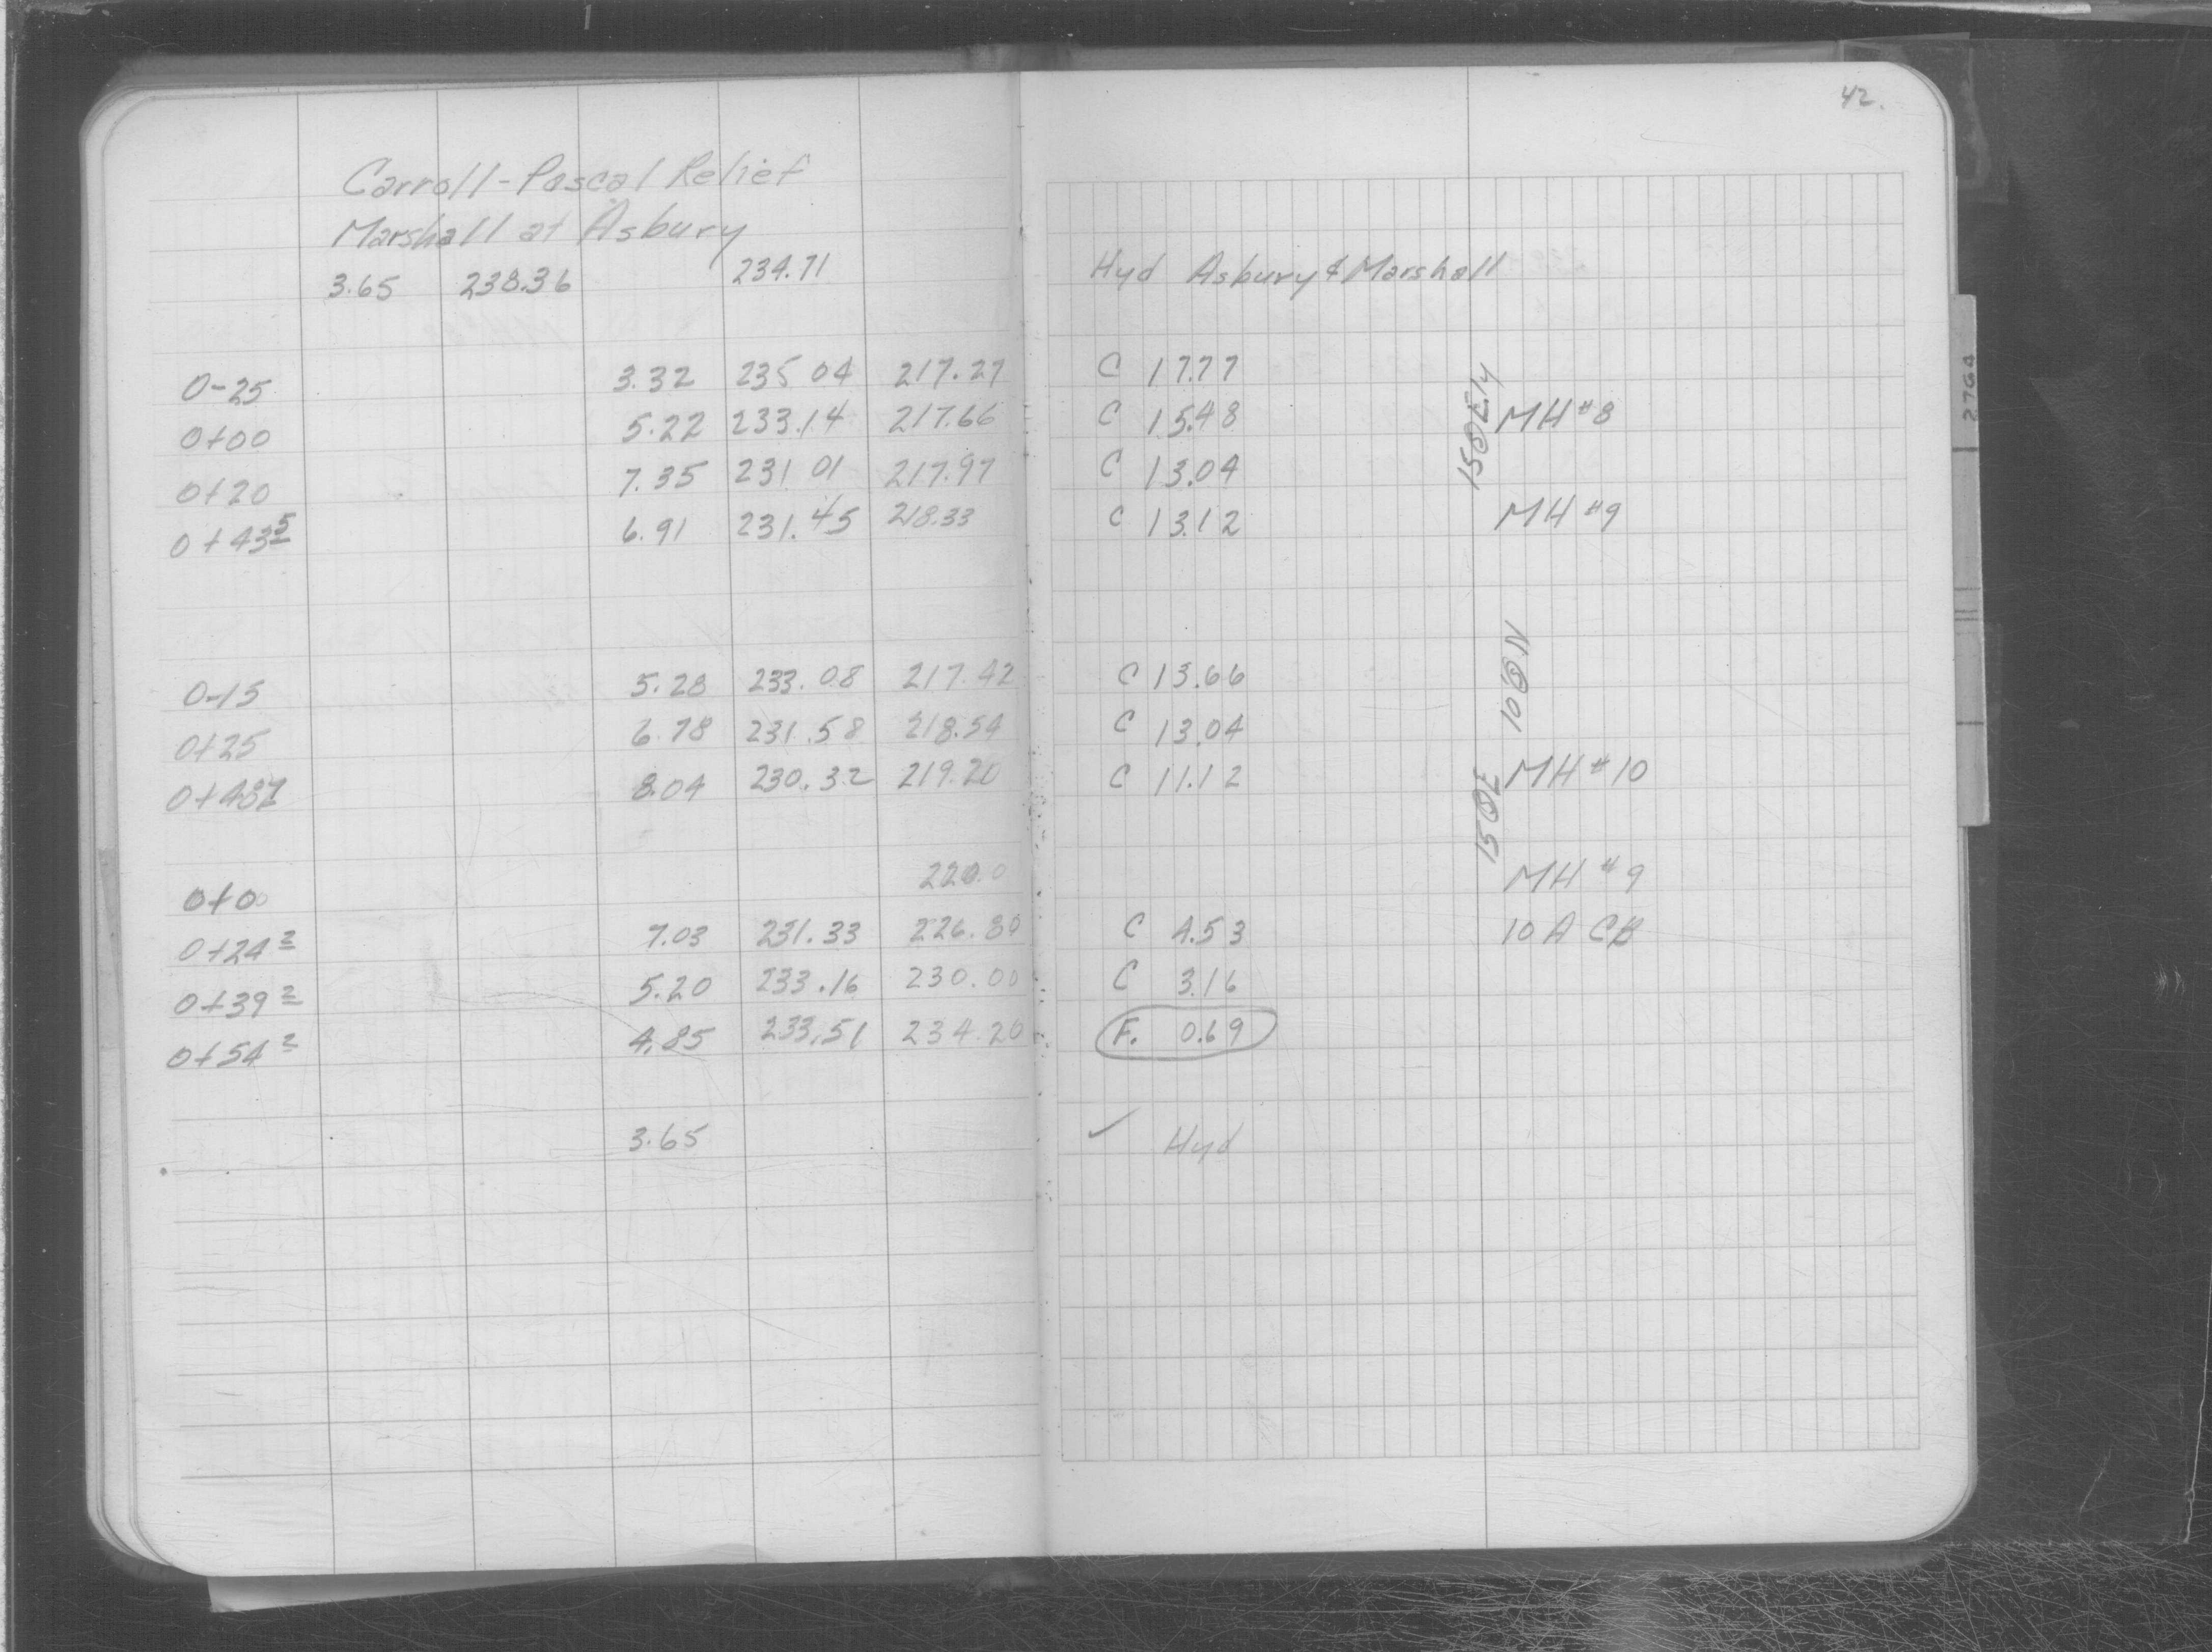 42.
Carroll-Pascal Relief
Marshall at Asbury
3.65 238.36 234.71 Hyd Asbury & Marshall
0-25 3.32 235 04 217.27 C 17.77
0+00 5.22 233.14 217.66 C 15.48 MH #8
0+20 7.35 231 01 217.97 C 13.04
0+43 5 6.91 231.45 218.33 C 13.12 MH #9
0-15 5.28 233.08 217.42 C 13.66
0+25 6.78 231.58 218.54 C 13.04
8.04 230.32 219.20 C 11.12 MH #10
0+00 220.0 MH #9
0+24 2 7.03 231.33 226.80 C 4.53 10 A CB
0+39 2 5.20 233.16 230.00 C 3.16
0+54 2 4.85 233.51 234.20 F. 0.69
3.65 ✓ Hyd
2764